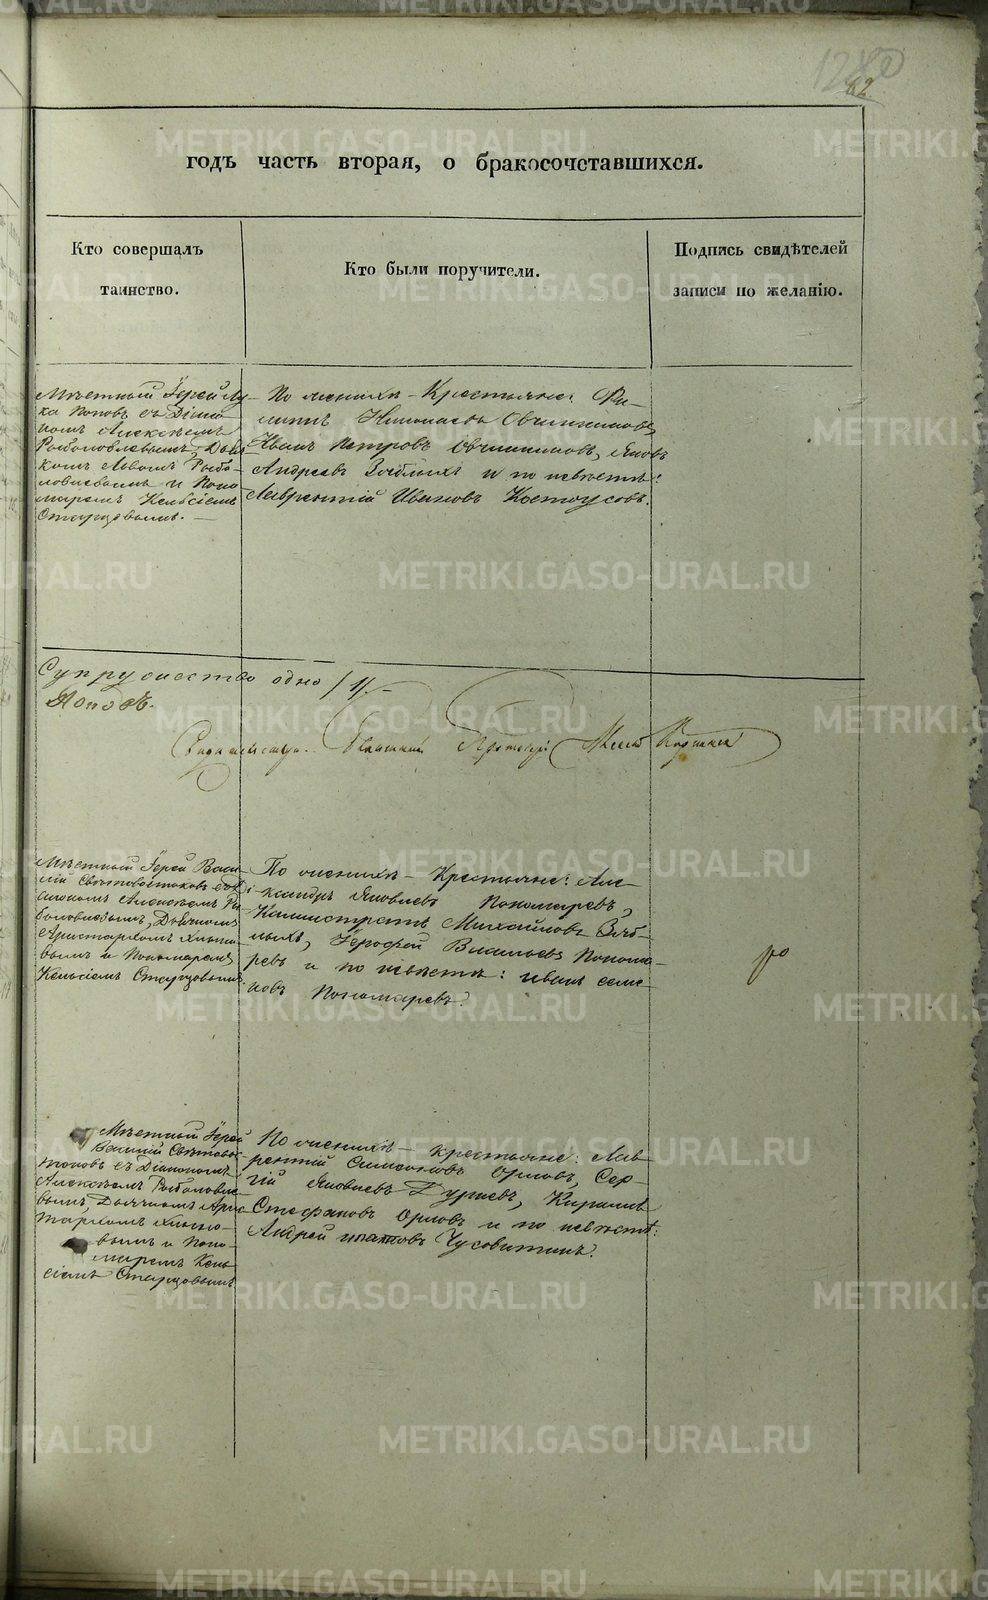 годъ часть вторая, о бракосочетавшихся.
Кто совершалъ
таинство.
Кто были поручители.
Подпись свидѣтелей
записи по желанію.
Мѣстный Іерей Лу-
ка Поповъ съ Діако-
номъ Алексѣемъ
Рыболовлевымъ, Дьяч-
комъ Львомъ Рыбо-
ловлевымъ и Поно-
маремъ Кельсіемъ
Старцовымъ.
По женихѣ - Крестьяне: Фи-
липпъ Николаевъ Овчинниковъ,
Иванъ Петровъ Овчинниковъ, Яковъ
Андреевъ Зяблыхъ и по невѣстѣ:
Лаврентій Ивановъ Костоусовъ.
Супружество одно /1/.
Мѣстный Іерей Васи-
лій Свѣтовостоковъ съ Ді-
акономъ Алексѣемъ Ры-
боловлевымъ, Дьячкомъ
Аристархомъ
вымъ и Пономаремъ
Кельсіемъ Старцовымъ.
По женихѣ - Крестьяне: Але-
ксандръ Яковлевъ Пономаревъ,
Каллистратъ Михайловъ Зяб-
лыхъ, Іерофей Васильевъ Понома-
ревъ и по невѣстѣ: Иванъ Семе-
новъ Пономаревъ.
Мѣстный Іерей
Василій Свѣтовос-
токовъ съ Діакономъ
Алексѣемъ Рыболовле-
вымъ, Дьячкомъ Арис-
тархомъ
вымъ и Поно-
маремъ Кель-
сіемъ Старцовымъ
По женихѣ - крестьяне: Лав-
рентій Симеоновъ Орловъ, Сер-
гій Яковлевъ Гуляевъ, Кириллъ
Стефановъ Орловъ и по невѣстѣ:
Андрей Ипатовъ Чусовитинъ.
METRIKI.GASO-URAL.RU